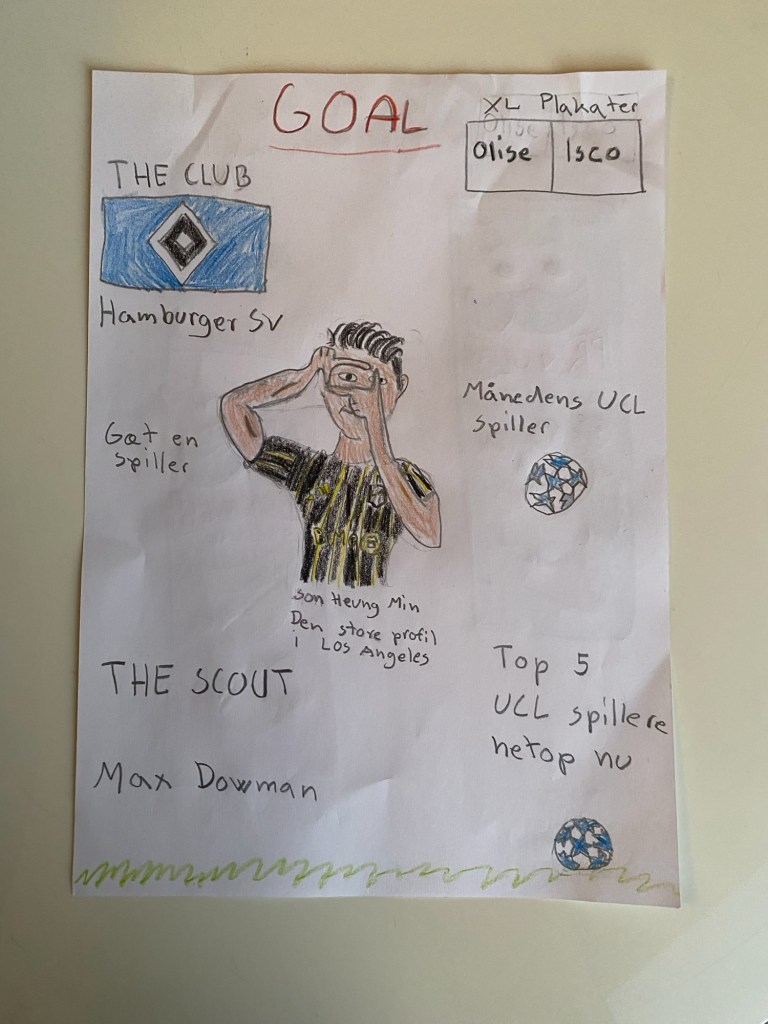 GOAL
XL Plakater
Olise Isco
THE CLUB
Hamburger SV
Månedens UCL
spiller
Gæt en
spiller
Son Heung Min
Den store profil
i Los Angeles
THE SCOUT
Max Dowman
Top 5
UCL spillere
netop nu